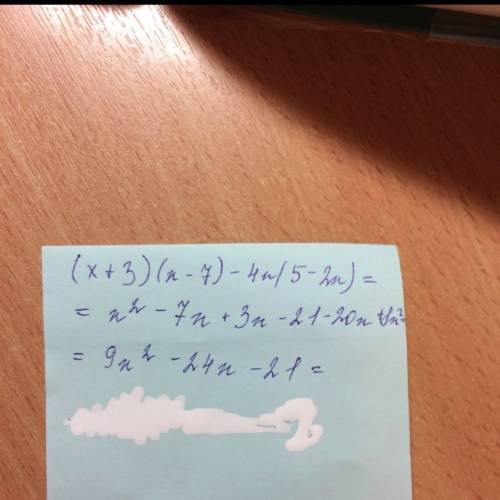 (x+3)(x-7)-4x(5-2x)=
= x² - 7x + 3x - 21 - 20x + 8x² =
= 9x² - 24x - 21 =